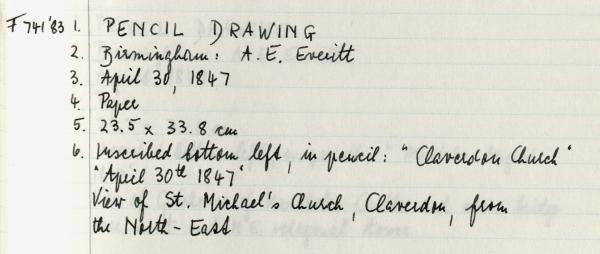 F741'83 1. PENCIL DRAWING
2. Birmingham: A.E. Everitt
3. April 30, 1847
4. Paper
5. 23.5 x 33.8 cm
6. Inscribed bottom left, in pencil: "Claverdon Church"
"April 30th 1847"
View of St. Michael's Church, Claverdon, from
the North-East